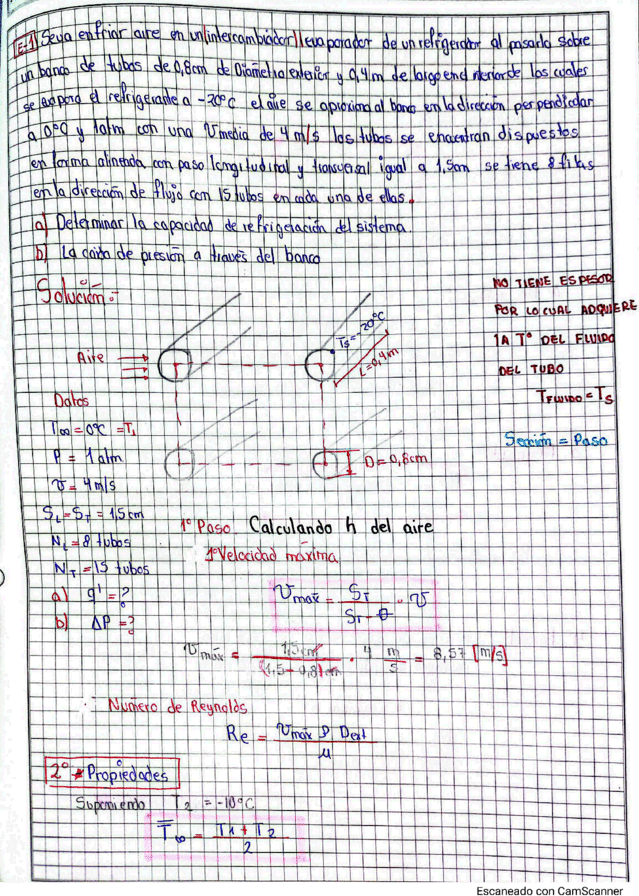 E-1) Se va enfriar aire en un (intercambiador) evaporador de un refrigerador al pasarlo sobre
un banco de tubos de 0,8cm de Diámetro exterior y 0,4m de largo end nterior de los cuales
se evapora el refrigerante a -20°C el aire se aproxima al banco en la dirección perpendicular
a 0°C y 1atm con una V media de 4 m/s los tubos se encuentran dispuestos
en forma alineada con paso longitudinal y transversal igual a 1,5cm se tiene 8 filas
en la dirección de flujo con 15 tubos en cada una de ellas.
a) Determinar la capacidad de refrigeración del sistema.
b) La caida de presión a través del banco
Solución:-
NO TIENE ESPESOR
POR LO CUAL ADQUIERE
LA T° DEL FLUIDO
DEL TUBO
T FLUIDO = Ts
Sección = Paso
Aire
Ts=-20°C
L=0,4m
D=0,8cm
Datos
T∞ = 0°C = T1
P = 1 atm
V = 4 m/s
SL = ST = 1,5 cm
NL = 8 tubos
NT = 15 tubos
a) q' = ?
b) ΔP = ?
1° Paso Calculando h del aire
1° Velocidad máxima
Vmax = ST / (ST - D) · V
Vmáx = 1,5 cm / (1,5 - 0,8) cm · 4 m/s = 8,57 [m/s]
Número de Reynolds
Re = Vmáx ρ Dext / μ
2° Propiedades
Suponiendo T2 = -10°C
T∞ = (T1 + T2) / 2
Escaneado con CamScanner